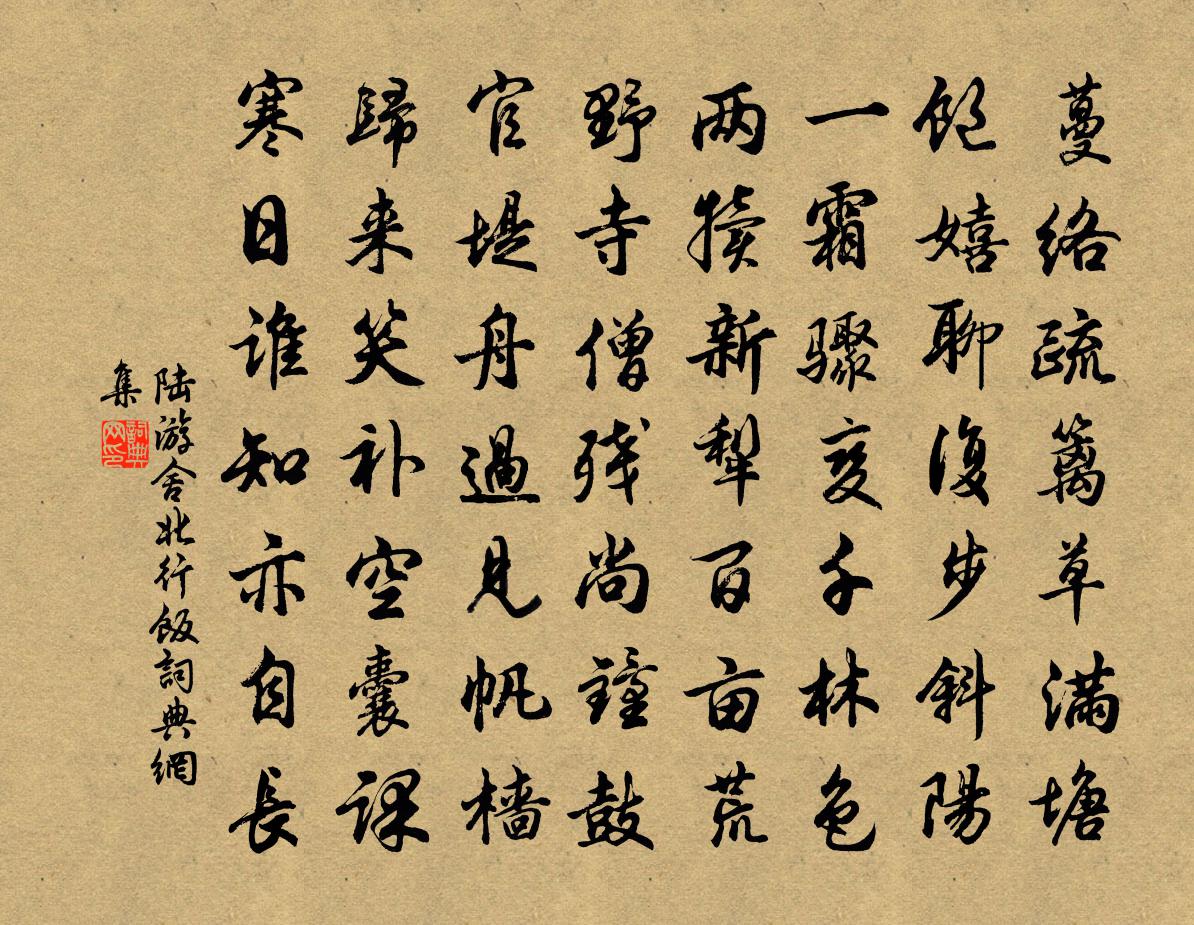 蔓络疏篱草满塘
饱嬉聊復步斜陽
一霜骤变千林色
两犊新犁百亩荒
野寺僧残尚鐘鼓
官堤舟過見帆檣
歸来笑补空囊课
寒日谁知亦自長
陆游舍北行飯詞典網
集
詞典网印